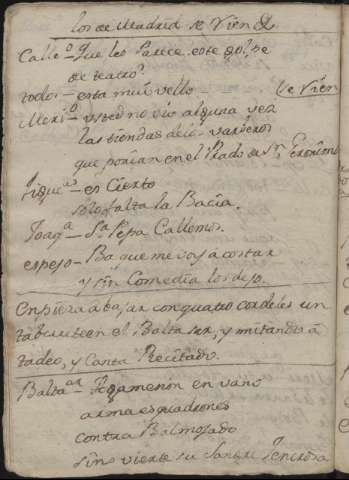 los de Madrid se Rien
Calle.o – Que les Parece este golpe
de teatro?
todos – esta mui vello – (se Rien
Meri.o – usted no vio alguna vez
las tiendas de los varveros
que ponian en el Prado de Sn Geronimo
es Cierto
solo falta la Bacia.
Joaq.a – Sa Pepa Callemos.
espejo – Ba que me voy a costar
y sin Comedia los dejo.
Empiera a bajar con quatro cordeles un
taburete en el Baltasar, y mirando a
tadeo, y Canta Recitado.
Balta.ar – Agamenon en vano
arma esquadrones
contra
sin vierte su Sangre